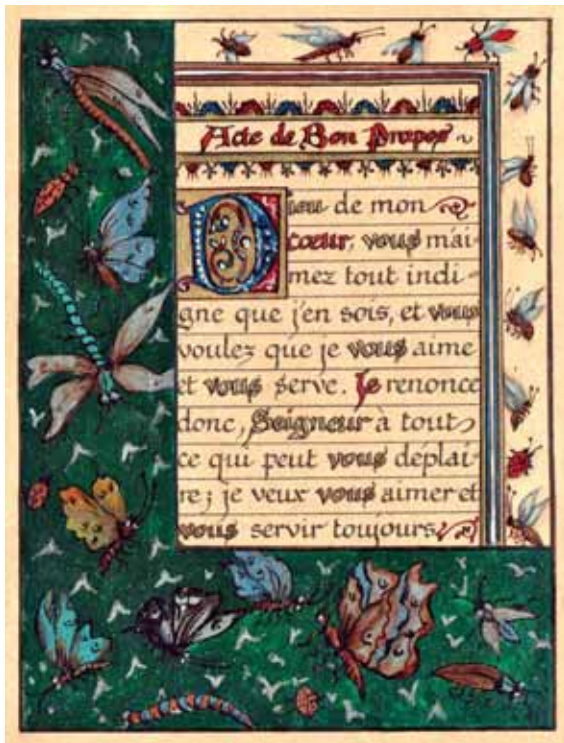 Acte de Bon Propos
Dieu de mon
cœur, vous m'ai-
mez tout indi-
gne que j'en sois, et vous
voulez que je vous aime
et vous serve. Je renonce
donc, Seigneur à tout
ce qui peut vous déplai-
re; je veux vous aimer et
vous servir toujours